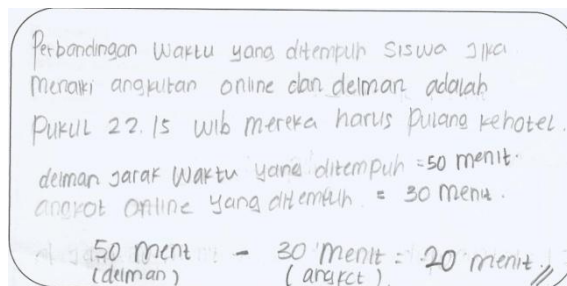 Perbandingan waktu yang ditempuh siswa jika
menaiki angkutan online dan delman adalah
Pukul 22.15 wib mereka harus pulang kehotel.
delman jarak waktu yang ditempuh = 50 menit.
angkot online yang ditempuh = 30 menit.
50 menit - 30 menit = 20 menit //
(delman) (angkot)